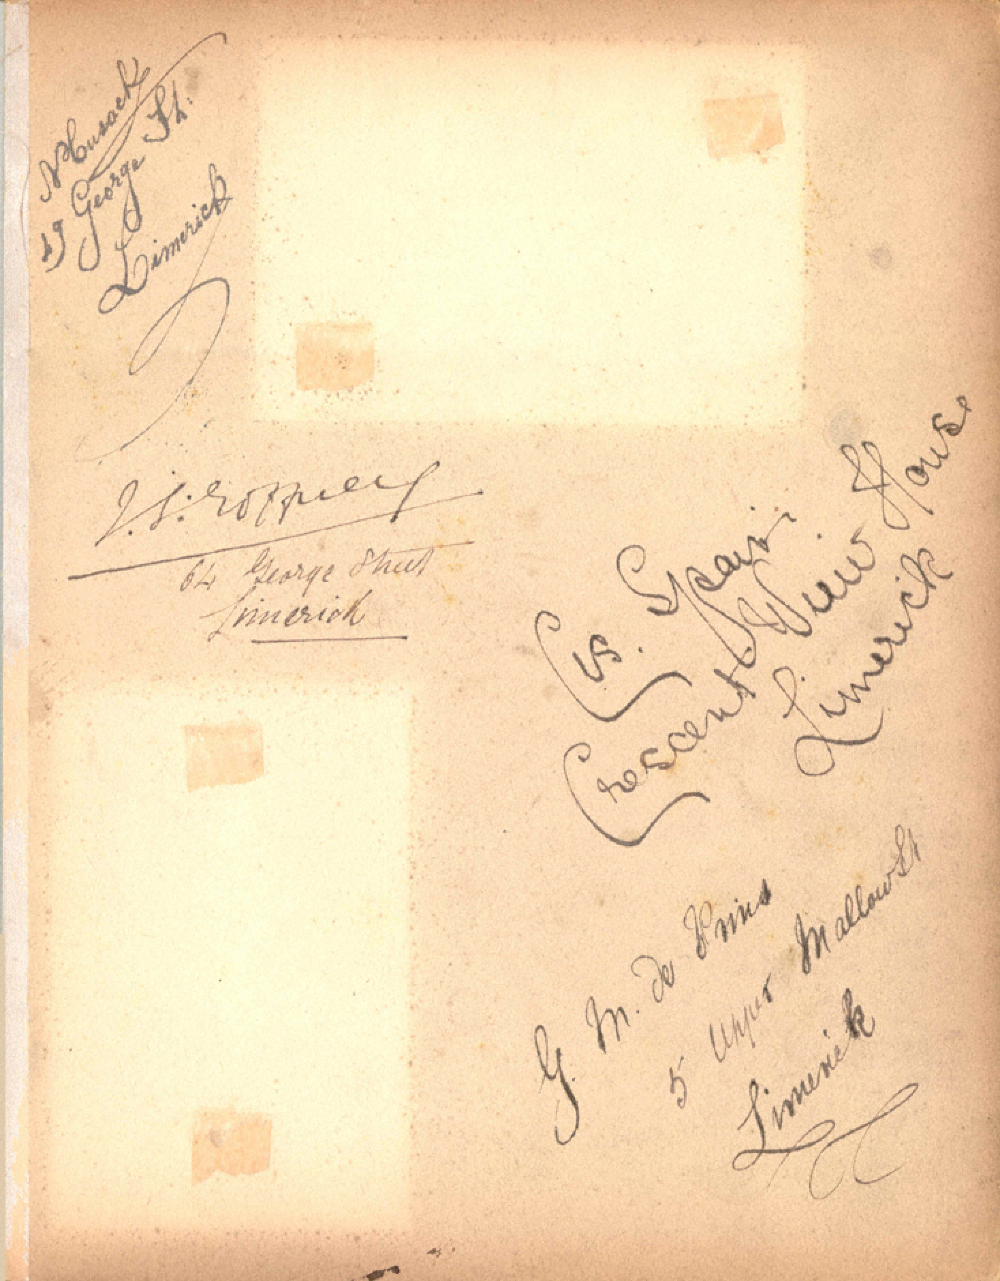 N Cusack
George St.
Limerick
64 George Street
Limerick
Cis.
Crescent View House
Limerick
G. M. de Prins
5 Upper Mallow St
Limerick